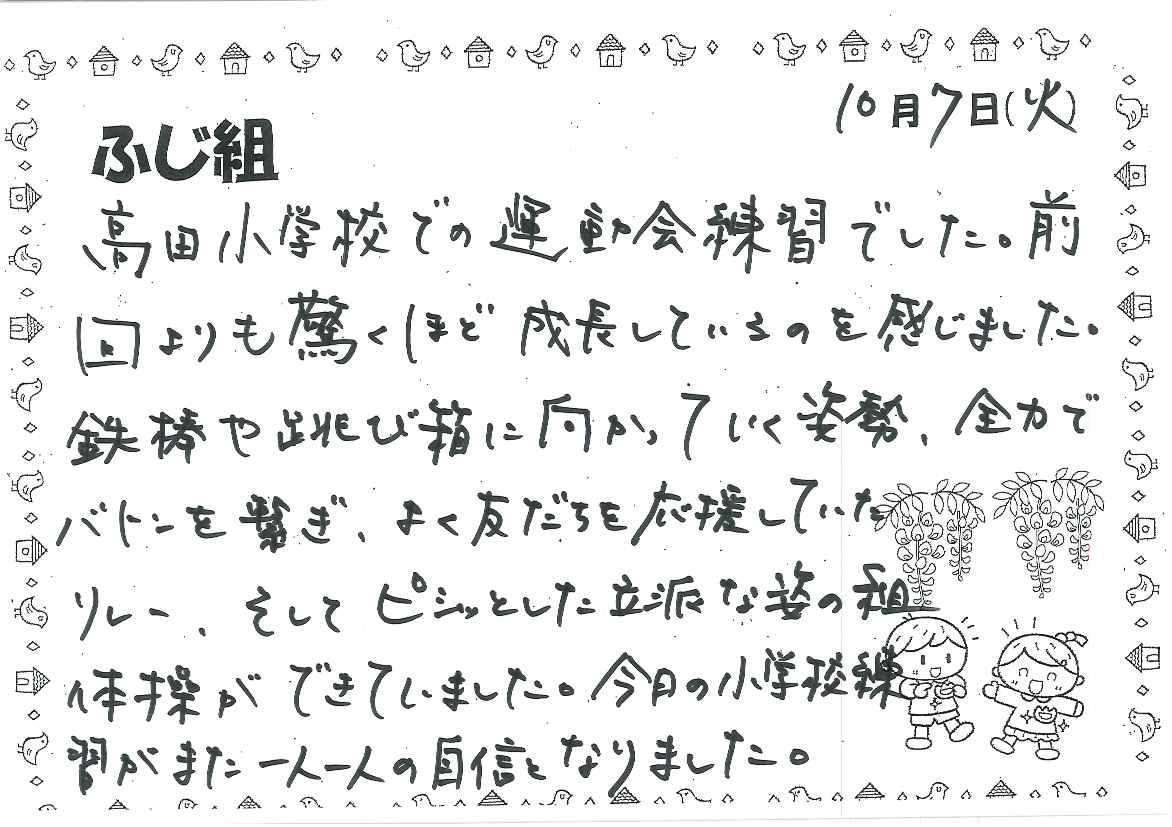 10月7日(火)
ふじ組
高田小学校での運動会練習でした。前
回よりも驚くほど成長しているのを感じました。
鉄棒や跳び箱に向かっていく姿勢、全力で
バトンを繋ぎ、よく友だちを応援していた
リレー、そしてピシッとした立派な姿の組
体操ができていました。今日の小学校練
習がまた一人一人の自信となりました。